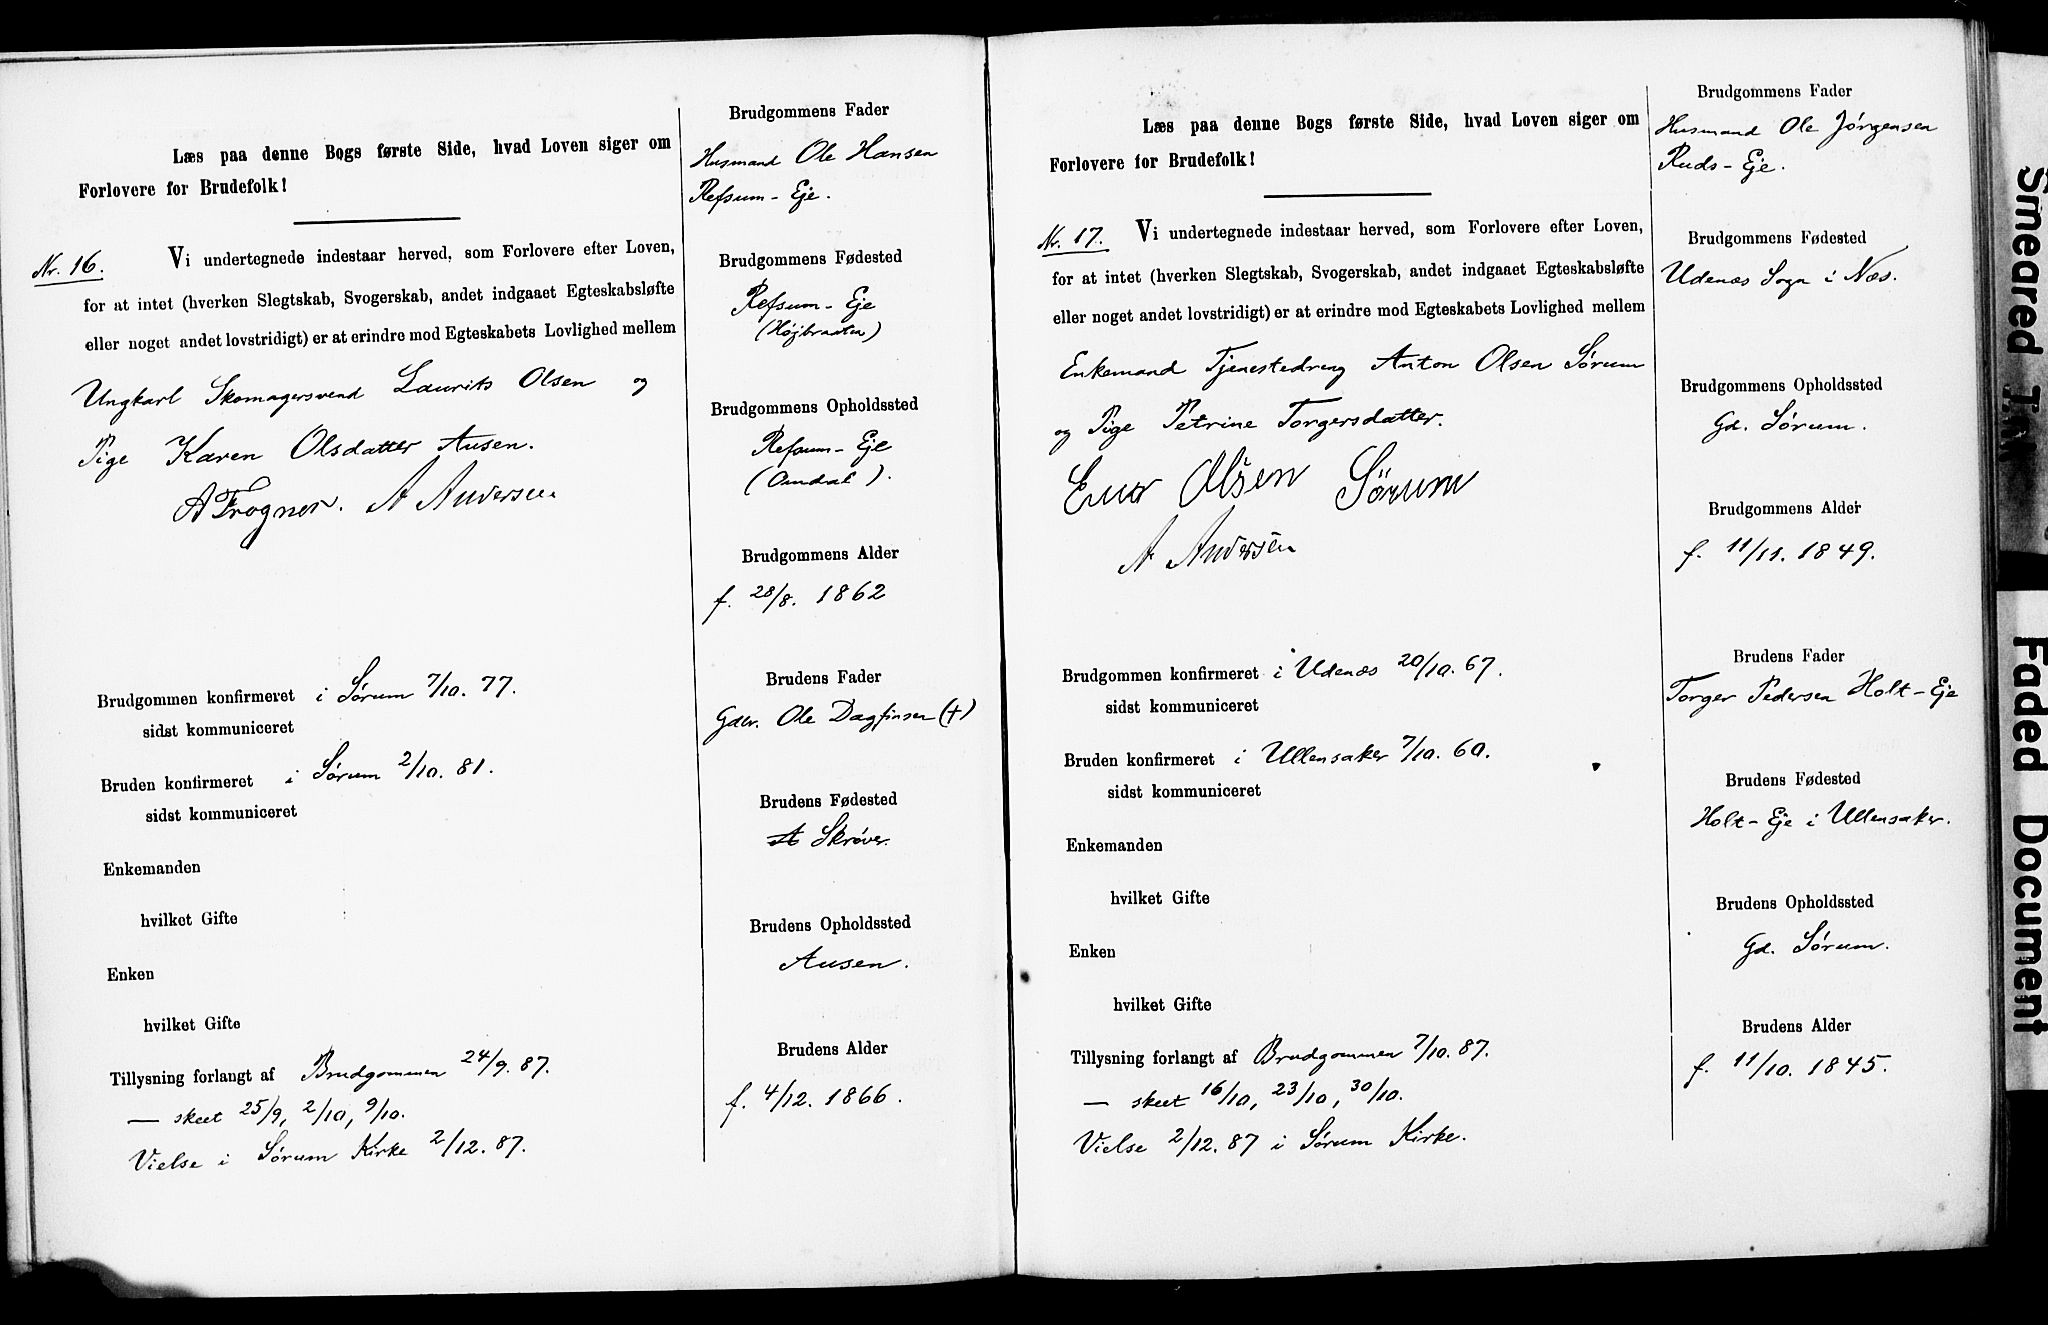 Læs paa denne Bogs første Side, hvad Loven siger om
Forlovere for Brudefolk!
Nr. 16. Vi undertegnede indestaar herved, som Forlovere efter Loven,
for at intet (hverken Slegtskab, Svogerskab, andet indgaaet Egteskabsløfte
eller noget andet lovstridigt) er at erindre mod Egteskabets Lovlighed mellem
Ungkarl Skomagersvend Laurits Olsen og
Pige Karen Olsdatter Ausen.
A Frogner. A Andersen
Brudgommen konfirmeret i Sørum 7/10. 77.
sidst kommuniceret
Bruden konfirmeret i Sørum 2/10. 81.
sidst kommuniceret
Enkemanden
hvilket Gifte
Enken
hvilket Gifte
Tillysning forlangt af Brudgommen 24/9. 87.
— skeet 25/9, 2/10, 9/10.
Vielse i Sørum Kirke 2/12. 87.
Brudgommens Fader
Husmand Ole Hansen
Refsum-Eje.
Brudgommens Fødested
Refsum-Eje
(Højbraaten)
Brudgommens Opholdssted
Refsum-Eje
(Omdal).
Brudgommens Alder
f. 28/8. 1862
Brudens Fader
Gdbr. Ole Dagfinsen (+)
Brudens Fødested
Skrøver.
Brudens Opholdssted
Ausen.
Brudens Alder
f. 4/12. 1866.
Læs paa denne Bogs første Side, hvad Loven siger om
Forlovere for Brudefolk!
Nr. 17. Vi undertegnede indestaar herved, som Forlovere efter Loven,
for at intet (hverken Slegtskab, Svogerskab, andet indgaaet Egteskabsløfte
eller noget andet lovstridigt) er at erindre mod Egteskabets Lovlighed mellem
Enkemand Tjenestedreng Anton Olsen Sørum
og Pige Petrine Torgersdatter.
Olsen Sørum
A Andersen
Brudgommen konfirmeret i Udenæs 20/10. 67.
sidst kommuniceret
Bruden konfirmeret i Ullensaker 7/10. 60.
sidst kommuniceret
Enkemanden
hvilket Gifte
Enken
hvilket Gifte
Tillysning forlangt af Brudgommen 7/10. 87.
— skeet 16/10, 23/10, 30/10.
Vielse 2/12. 87 i Sørum Kirke.
Brudgommens Fader
Husmand Ole Jörgensen
Ruds-Eje.
Brudgommens Fødested
Udenæs Sogn i Næs.
Brudgommens Opholdssted
Gd. Sørum.
Brudgommens Alder
f. 11/11. 1849.
Brudens Fader
Torger Pedersen Holt-Eje
Brudens Fødested
Holt-Eje i Ullensaker.
Brudens Opholdssted
Gd. Sørum.
Brudens Alder
f. 11/10. 1845.
Smeared
Faded Document